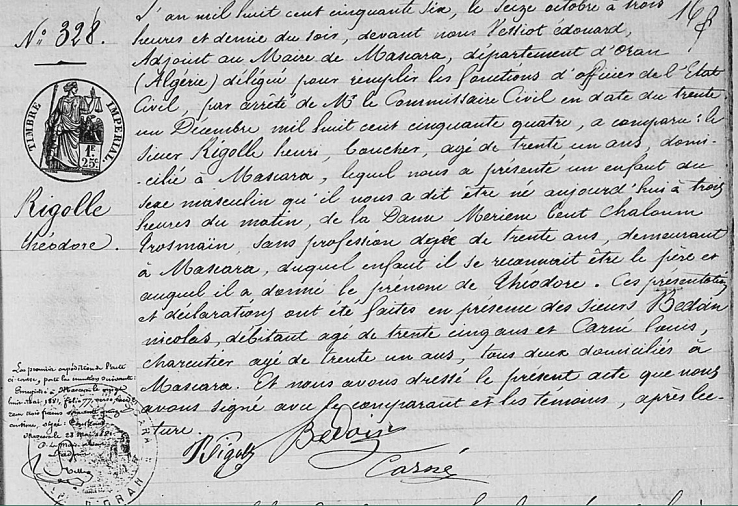 N° 328.
TIMBRE IMPERIAL
1F
25c
Rigolle
théodore.
L'an mil huit cent cinquante six, le seize octobre à trois
heures et demie du soir, devant nous Vessiot édouard,
Adjoint au Maire de Mascara, département d'Oran
(Algérie) délégué pour remplir les fonctions d'officier de l'Etat
Civil, par arrêté de Mr le Commissaire Civil en date du trente
un Décembre mil huit cent cinquante quatre, a comparu: le
sieur Rigolle henri, boucher, agé de trente un ans, domi-
cilié à Mascara, lequel nous a présenté un enfant du
sexe masculin qu'il nous a dit être né aujourd'hui à trois
heures du matin, de la Dame Meriem bent Chaloum
sans profession agée de trente ans, demeurant
à Mascara, duquel enfant il se reconnait être le père et
auquel il a donné le prénom de théodore. Ces présentation
et déclaration ont été faites en présence des sieurs Bedoin
nicolas, débitant agé de trente cinq ans et Carné louis,
charcutier agé de trente un ans, tous deux domiciliés à
Mascara. Et nous avons dressé le présent acte que nous
avons signé avec le comparant et les temoins, après lec-
ture.
Bedoin
Carné
La première expédition
Mascara le